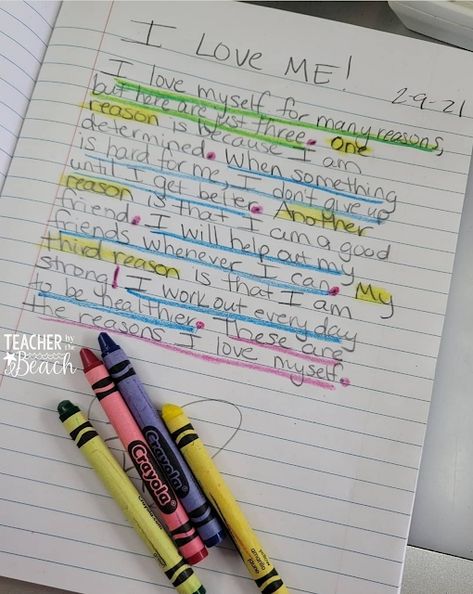 I LOVE ME!
2-9-21
I love myself for many reasons,
but here are just three. One
reason is because I am
determined. When something
is hard for me, I don't give up
until I get better. Another
reason is that I am a good
friend. I will help out my
friends whenever I can. My
third reason is that I am
strong! I work out every day
to be healthier. These are
the reasons I love myself.
TEACHER by the
Beach
Crayola
Crayola
yellow
amarillo
jaune